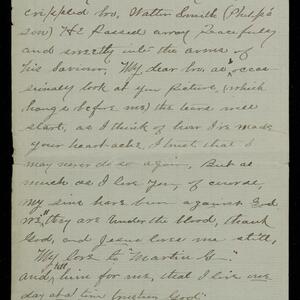 crippled bro. Walter Smith (Philip's
son) He passed away Peacefully
and sweetly into the arms of
his Saviour. My dear bro. as I occa-
sionally look at your picture, (which
hangs before me) the tears will
start, as I think of how I've made
your heart ache, I trust that I
may never do so again, But as
much as I love you, of course,
my sins have been against God
they are under the blood, thank
God, and Jesus loves me still,
My love to "Martin G"
and tell him for me, that I live one
day at a time trusting God.